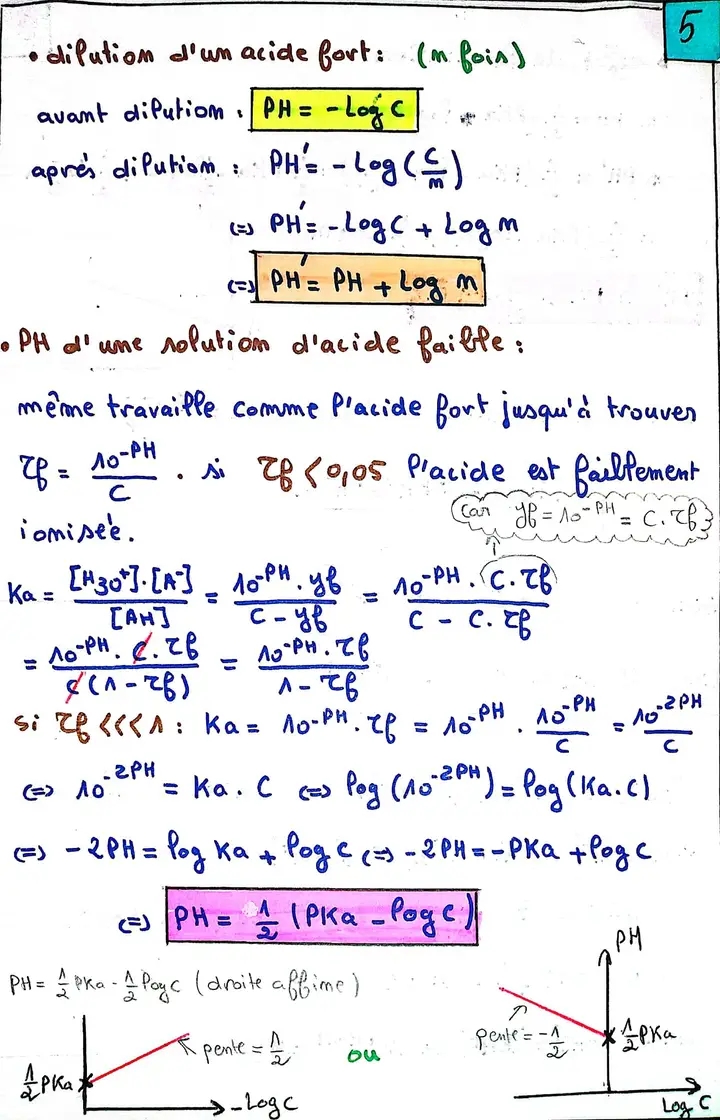 5
• dilution d'un acide fort : (n fois)
avant dilution : PH = -Log C
après dilution : PH' = -Log (C/n)
(=) PH' = -Log C + Log n
(=) PH' = PH + Log n
• PH d'une solution d'acide faible :
même travaille comme l'acide fort jusqu'à trouver
τf = 10^-PH / C . si τf < 0,05 l'acide est faiblement
ionisée.
(car yf = 10^-PH = C.τf)
Ka = [H3O+].[A-] / [AH] = 10^-PH . yf / (C - yf) = 10^-PH . C.τf / (C - C.τf)
= 10^-PH . C.τf / C(1-τf) = 10^-PH . τf / (1-τf)
si τf <<< 1 : Ka = 10^-PH . τf = 10^-PH . 10^-PH / C = 10^-2PH / C
(=) 10^-2PH = Ka . C (=) log (10^-2PH) = log (Ka.C)
(=) -2PH = log Ka + log C (=) -2PH = -PKa + log C
(=) PH = 1/2 (PKa - log C)
PH = 1/2 PKa - 1/2 log C (droite affine)
pente = 1/2
1/2 PKa
-Log C
ou
PH
pente = -1/2
1/2 PKa
Log C